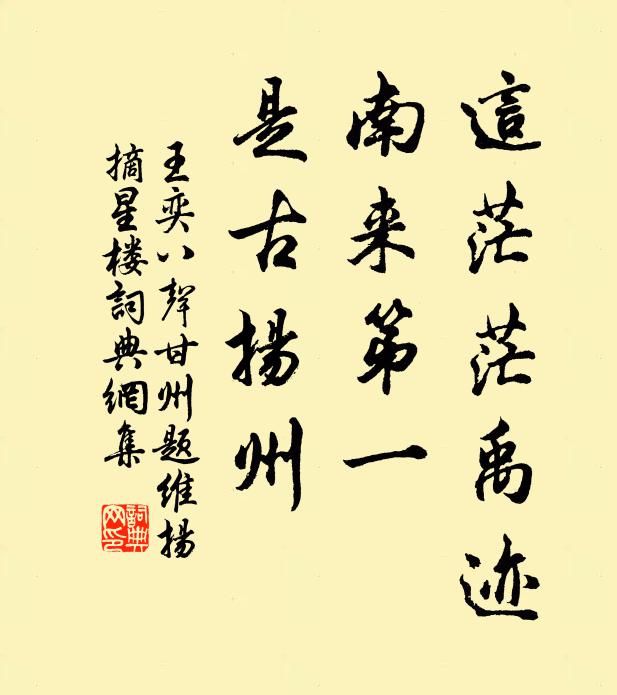 這茫茫禹迹
南来第一
是古揚州
王奕八聲甘州题維揚
摘星楼詞典網集
詞典网印